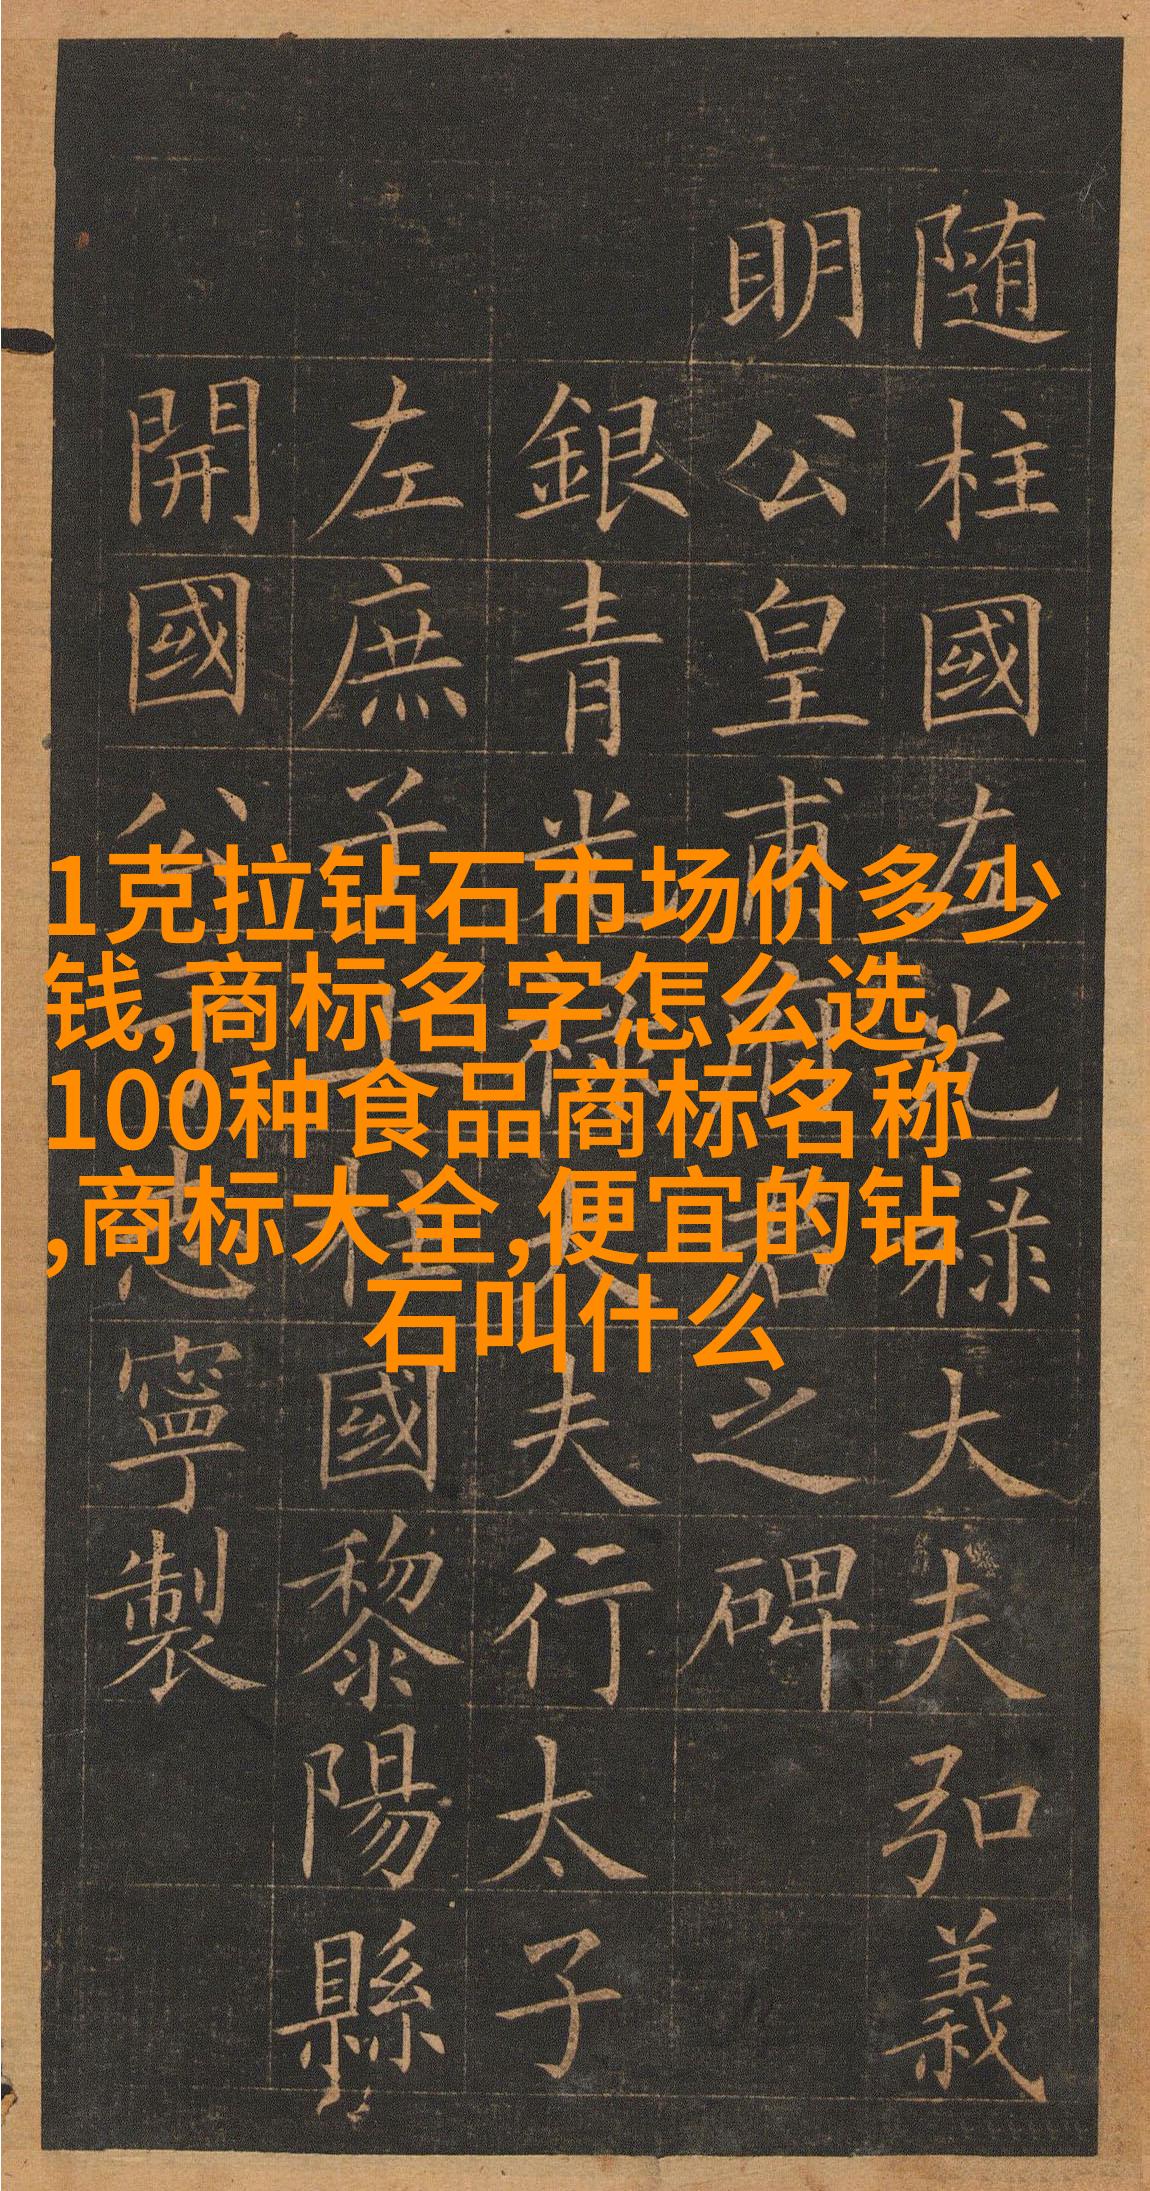 随柱國左光禄大夫弘義
明公皇甫府君之碑
銀青光禄大夫行太子
左庶子上柱國黎陽縣
開國公于志寧製
1克拉钻石市场价多少
钱,商标名字怎么选,
100种食品商标名称
,商标大全,便宜的钻
石叫什么